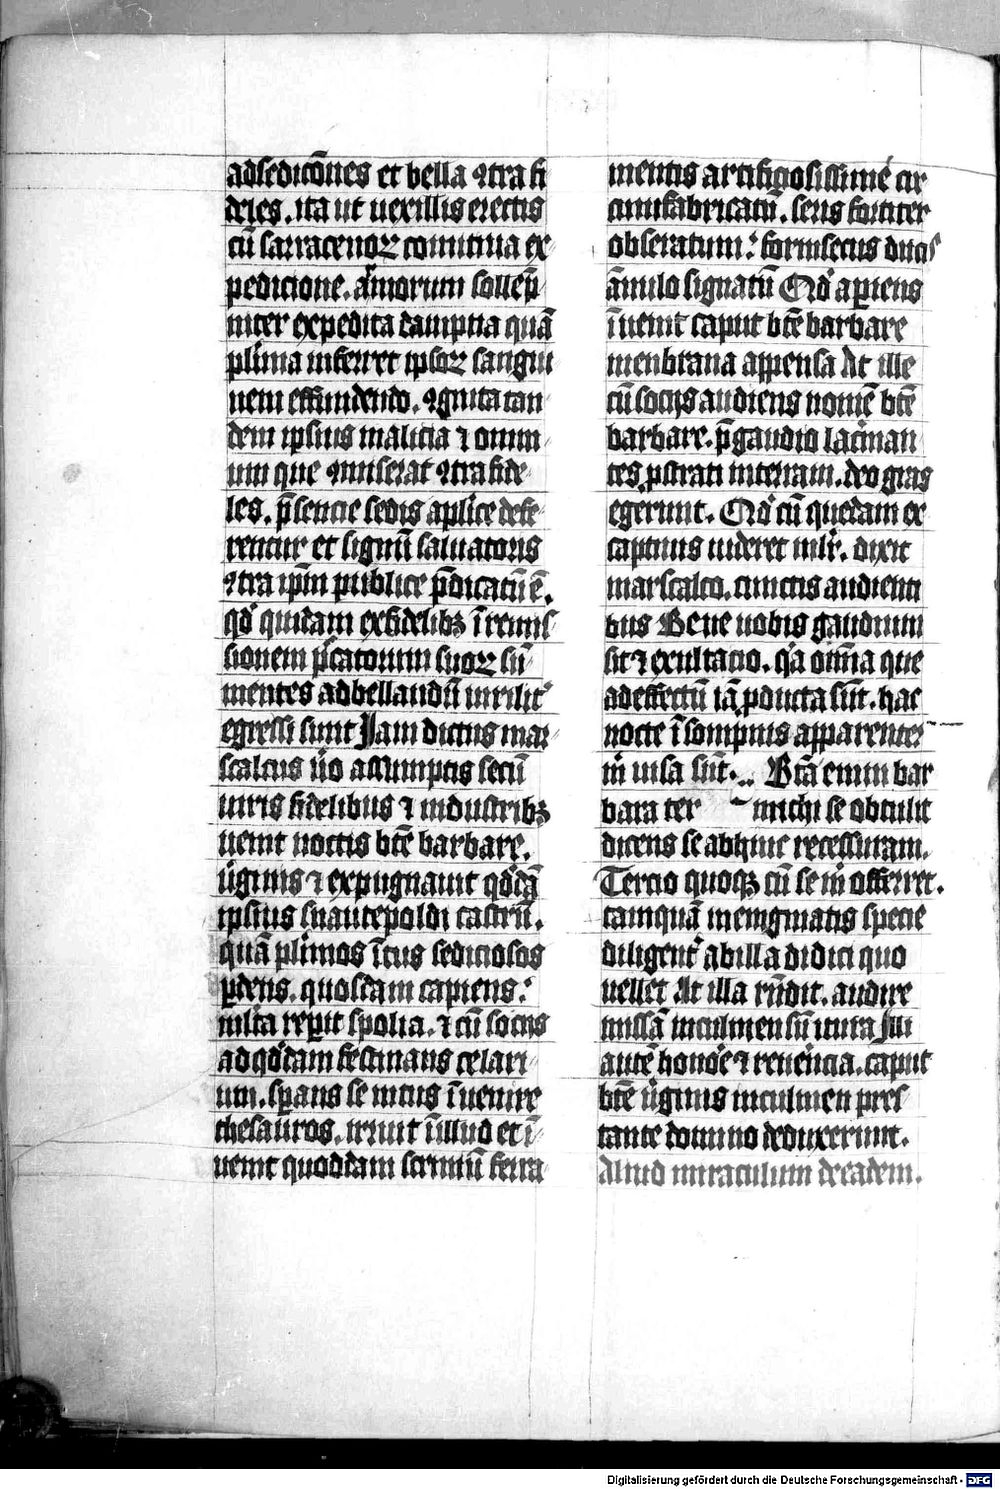 adsedicōnes et bella ꝯtra fi
deles. ita ut uexillis erectis
cū sarracenoꝝ comitiua ex
pedicione. armorum sollēp
niter expedita dampna quā
plima inferret ipsoꝝ sangui
nem effundendo. ꝯgnita tan
dem ipsius malicia ⁊ omni
um que ꝯmiserat ꝯtra fide
les. p̄sencie sedis aplice defe
rentur et signū saluatoris
ꝯtra ipm̄ publice p̄dicatū ē.
qd̓ quidam ex fidelibꝫ ī remis
sionem pccatorum suoꝝ sū
mentes adbellandū uirilit̓
egressi sunt Jam dictus mar
scalcus ūo assumptis secū
uiris fidelibus ⁊ industribꝫ
uenit noctis btē barbare.
ūginis ⁊ expugnauit qd̓dā
ipsius suantepoldi castrū.
quā plimos īcus sediciosos
ꝑdens. quosdam capiens.
mlta reꝑit spolia. ⁊ cū sociis
adqd̓dam festinans celari
um. sꝑans se intus īuenire
thesauros. iruit ī illud et ī
uenit quoddam scriniū ferra
mentis artifigosissime cir
cumfabricatū. seris fortiter
obseratum. forinsecus duos
ānulo signatū Qd̓ aꝑiens
īuenit caput btē barbare
menbrana appensa At ille
cū sociis audiens nomē btē
barbare. p̄ gaudio lacr̓iman
tes ꝓstrati interram. deo gr̄as
egerunt. Qd̓ cū quedam ex
captiuis uideret mlr̓. dixit
marscalco. cunctis audienti
bus Bene uobis gaudium
sit ⁊ exultacio. q̓a om̄ia que
adeffectū iā ꝓducta sūt. hac
nocte ī sompnis apparentes
m̓ uisa sūt. Btā enim bar
bara ter michi se obtulit
dicens se abhinc recessuram.
Tercio quoqꝫ cū se m̓ offerret.
tamquā inenigmatis specie
diligent̓ abilla didici quo
uellet At illa rn̄dit. audire
missā inculmen sū itura Illi
autē honoe ⁊ reuēncia. caput
btē ūginis inculmen pres
tante domino deduxerunt.
Aliud miraculum deeadem.
Digitalisierung gefördert durch die Deutsche Forschungsgemeinschaft - DFG